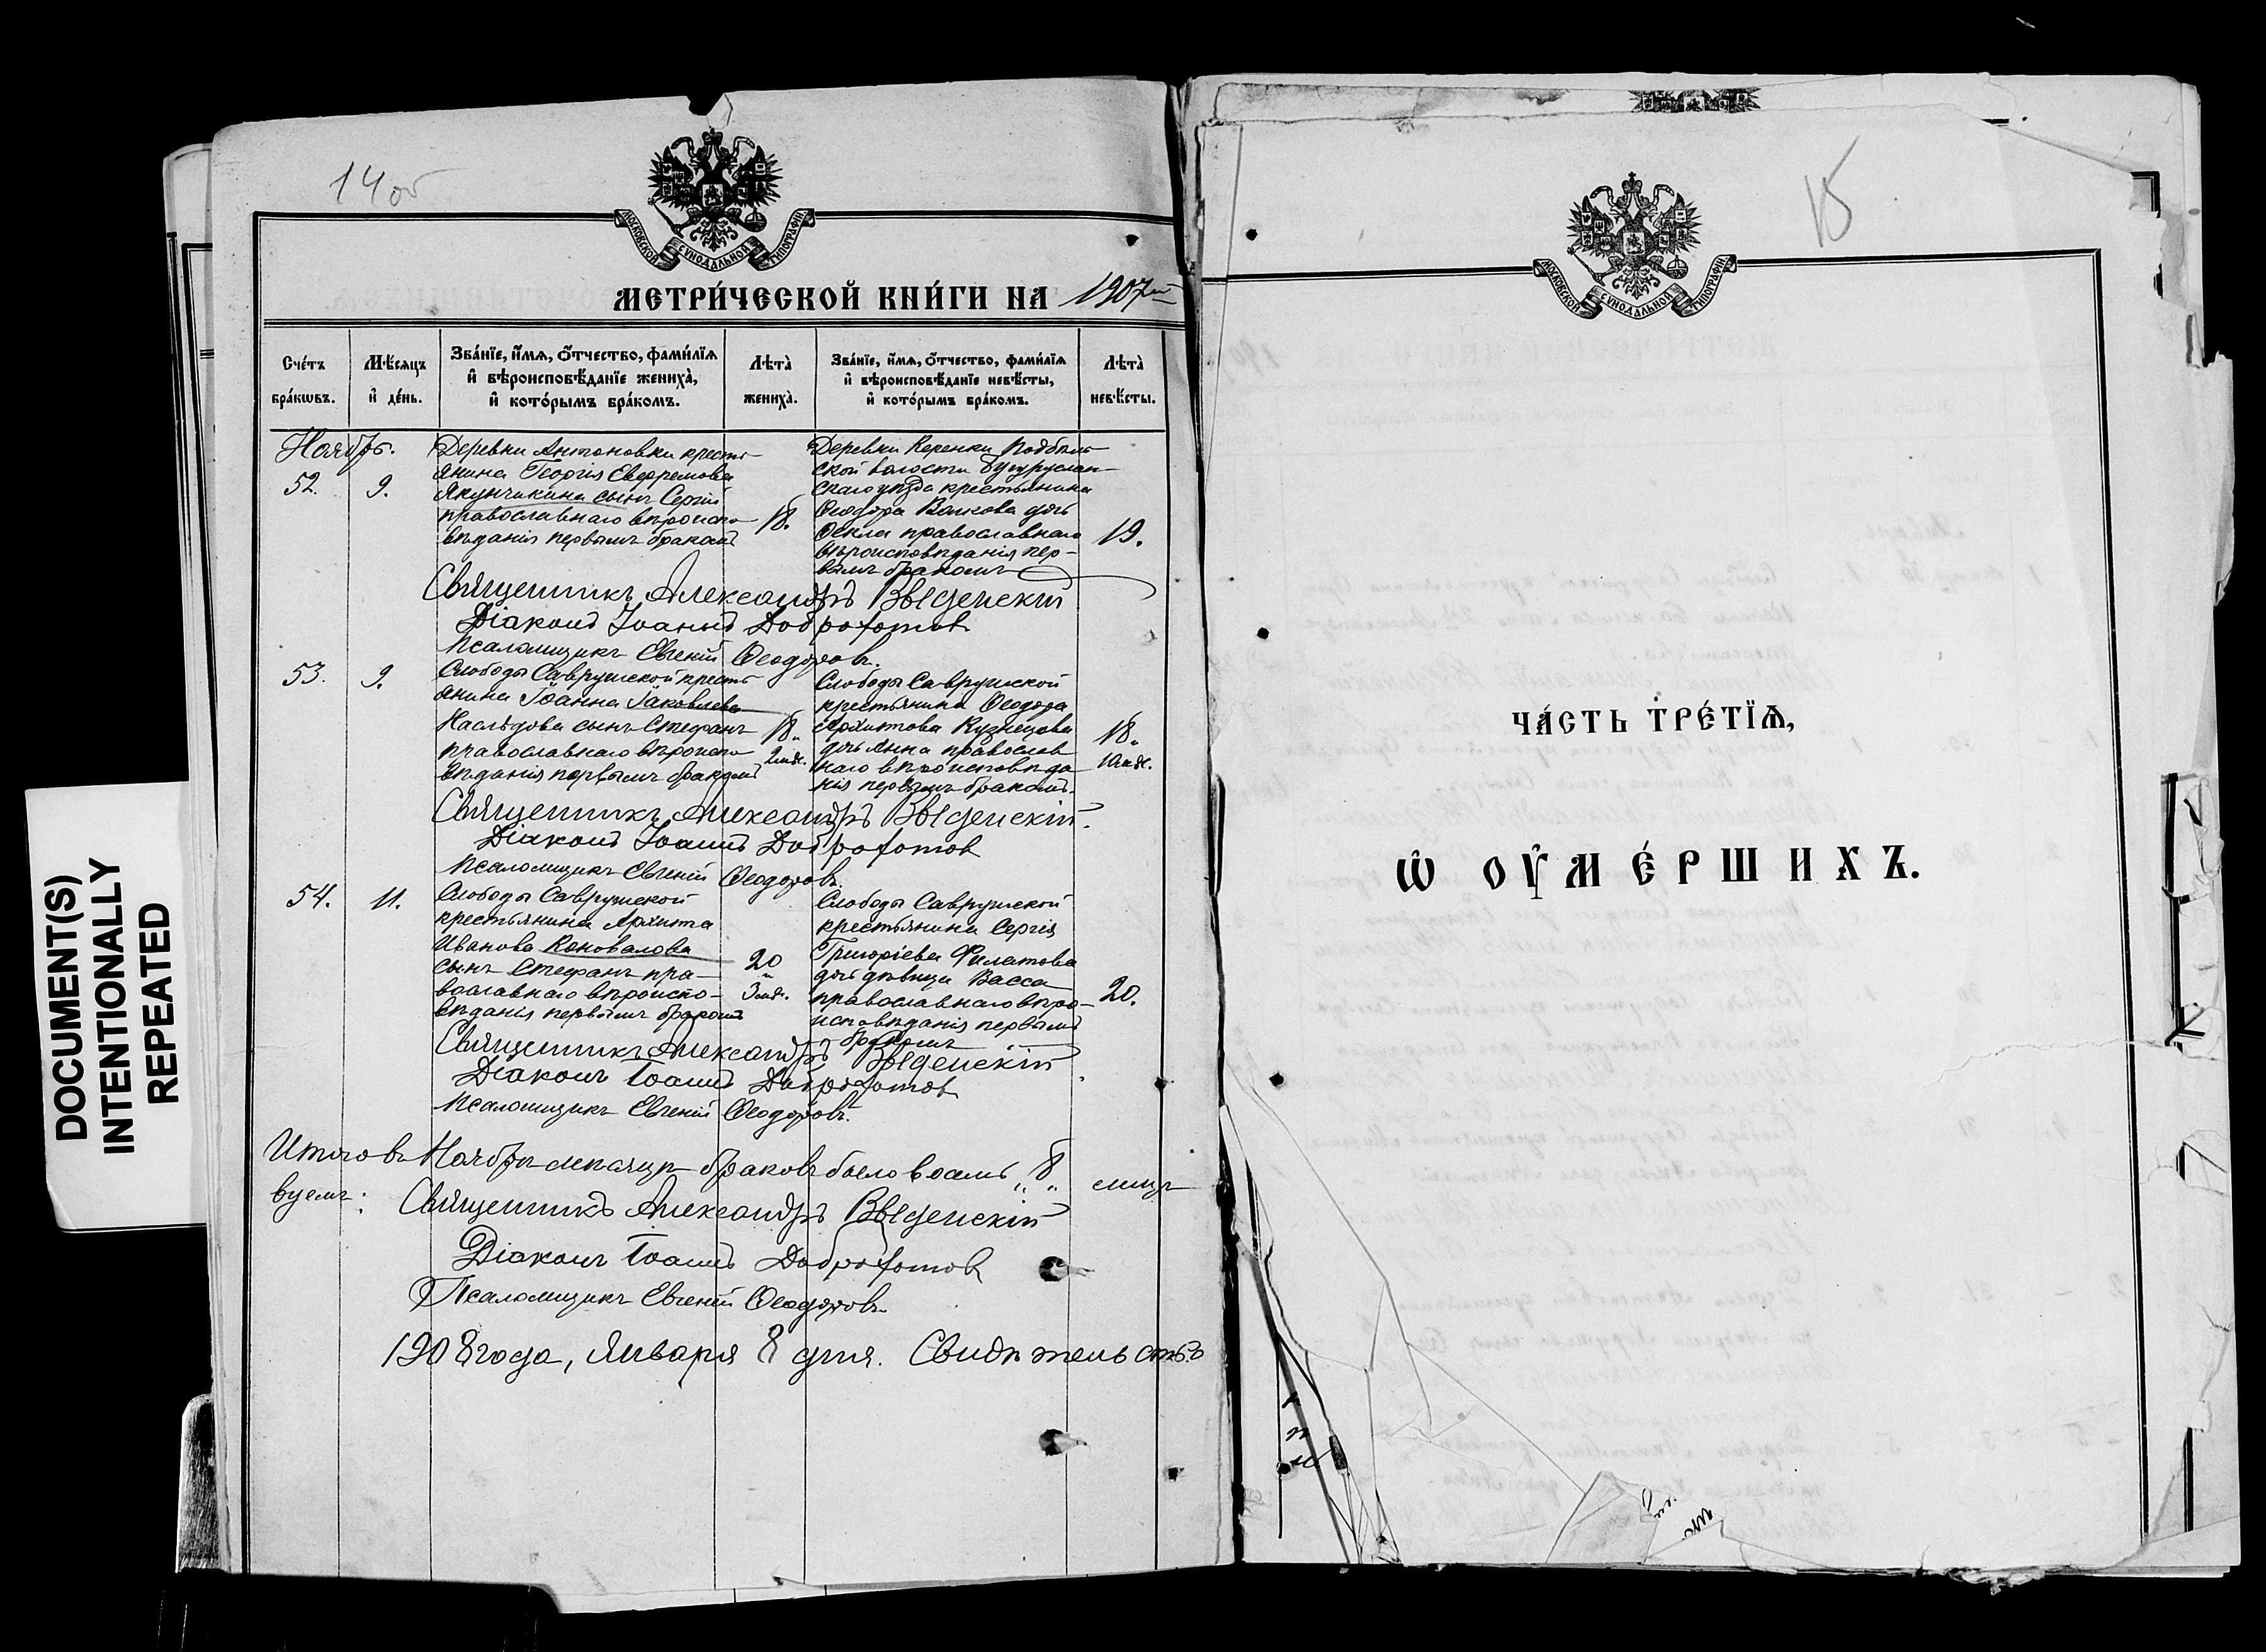 DOCUMENT(S)
INTENTIONALLY
REPEATED
14 об
МОСКОВСКОЙ СУНОДАЛЬНОЙ ТИПОГРАФІИ
МЕТРИ́ЧЕСКОЙ КНИ́ГИ НА 1907й
Сче́тъ бра́кѡвъ.
Мѣ́сяцъ и҆ де́нь.
Зва́нїе, и҆́мѧ, ѻ҆́тчество, фами́лїѧ
и҆ вѣроисповѣ́данїе жениха̀,
и҆ кото́рымъ бра́комъ.
Лѣта̀ жениха̀.
Зва́нїе, и҆́мѧ, ѻ҆́тчество, фами́лїѧ
и҆ вѣроисповѣ́данїе невѣ́сты,
и҆ кото́рымъ бра́комъ.
Лѣта̀ невѣ́сты.
Ноябрь.
52. 9.
Деревни Антоновки кресть-
янина Георгія Евфремова
Якунчикина сынъ Сергій
православнаго вѣроиспо-
вѣданія первымъ бракомъ
18.
Деревни Керенки Подбѣль-
ской волости Бугуруслан-
скаго уѣзда крестьянина
Ѳеодора Волкова дочь
Ѳекла православнаго
вѣроисповѣданія пер-
вымъ бракомъ
19.
Священникъ Александръ Введенскій
Діаконъ Іоаннъ Доброхотовъ
Псаломщикъ Евгеній Ѳеодоровъ.
53. 9.
Слободы Саврушской кресть-
янина Іоанна Іаковлева
Наслѣдова сынъ Стефанъ
православнаго вѣроиспо-
вѣданія первымъ бракомъ
18.
2 мѣс.
Слободы Саврушской
крестьянина Ѳеодора
Архипова Кузнецова
дочь Анна православ
наго вѣроисповѣда-
нія первымъ бракомъ.
18.
10 мѣс.
Священникъ Александръ Введенскій.
Діаконъ Іоаннъ Доброхотовъ
Псаломщикъ Евгеній Ѳеодоровъ.
54. 11.
Слободы Саврушской
крестьянина Архипа
Иванова Коновалова
сынъ Стефанъ пра-
вославнаго вѣроиспо-
вѣданія первымъ бракомъ
20
3 мѣс.
Слободы Саврушской
крестьянина Сергія
Григоріева Филатова
дочь дѣвица Васса
православнаго вѣро-
исповѣданія первымъ
бракомъ
20.
Священникъ Александръ Введенскій
Діаконъ Іоаннъ Доброхотовъ
Псаломщикъ Евгеній Ѳеодоровъ.
Итого въ Ноябрѣ мѣсяцѣ браковъ было восемь „8„
Священникъ Александръ Введенскій
Діаконъ Іоаннъ Доброхотовъ
Псаломщикъ Евгеній Ѳеодоровъ.
1908 года, Января 8 дня. Свидѣтельств.
15
МОСКОВСКОЙ СУНОДАЛЬНОЙ ТИПОГРАФІИ
ЧА́СТЬ ТРЕ́ТЇѦ,
Ѡ҆ ОУ҆МЕ́РШИХЪ.